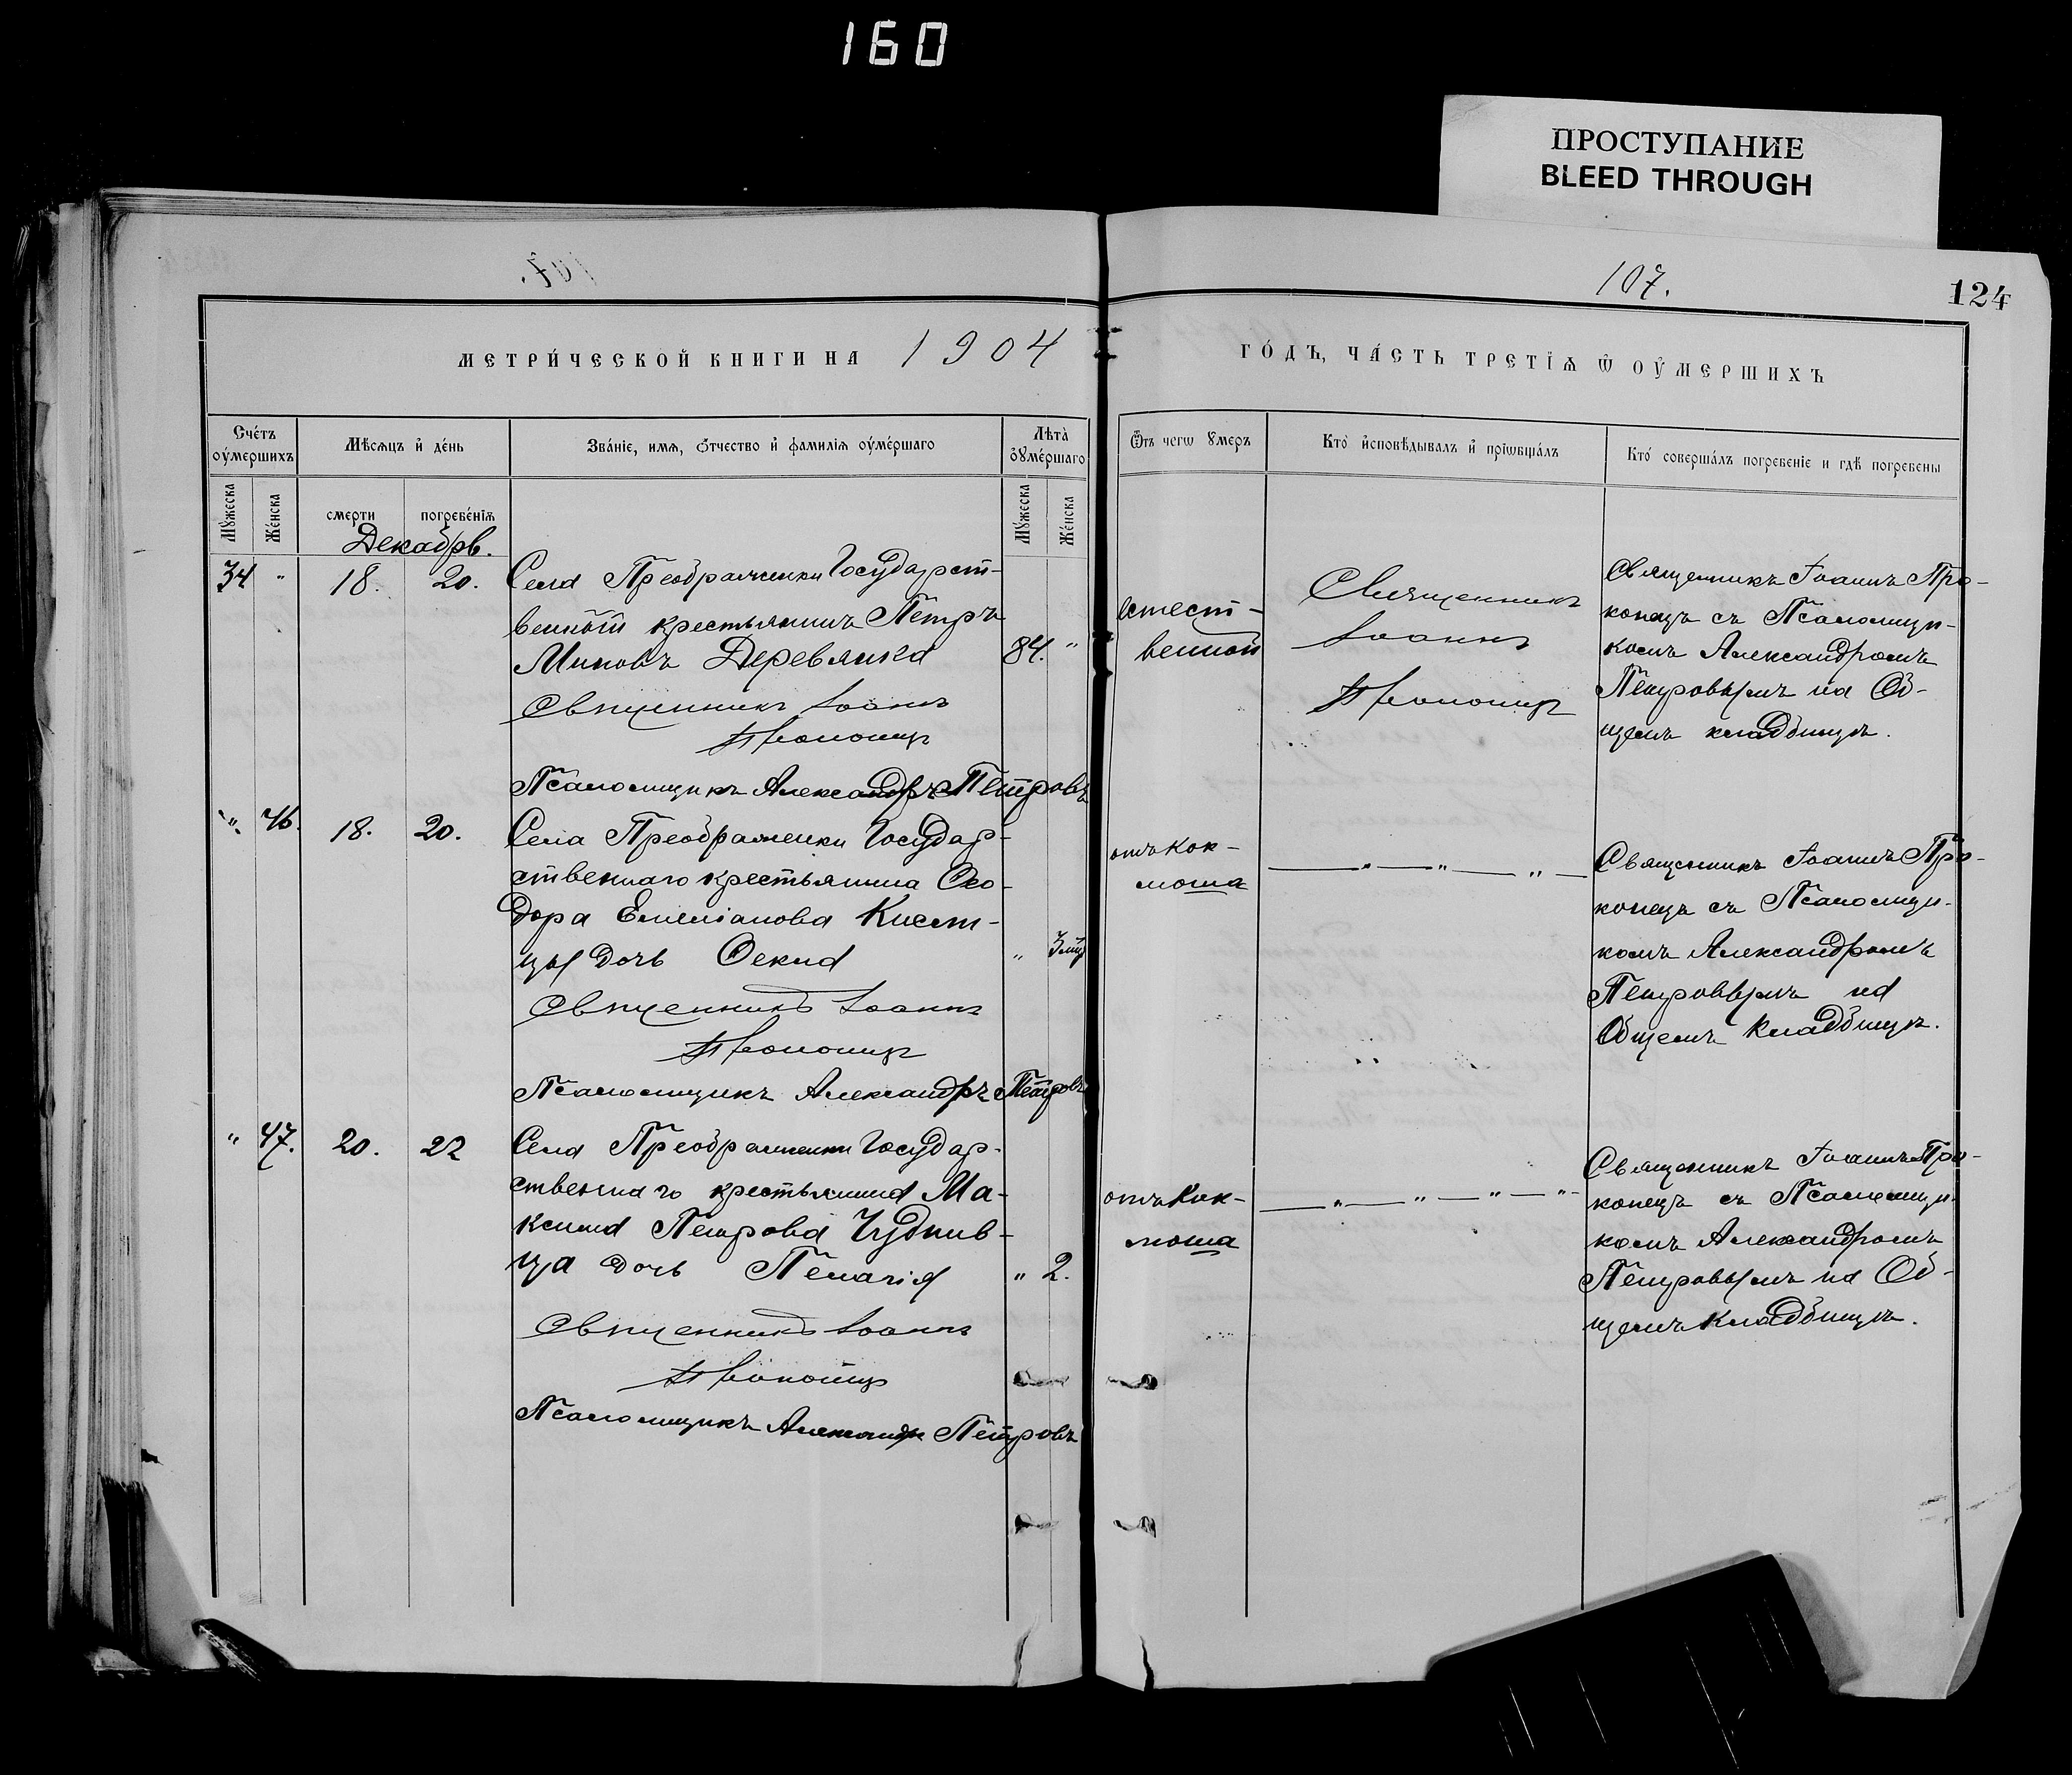 160
ПРОСТУПАНИЕ
BLEED THROUGH
107.
124
МЕТРИ́ЧЕСКОЙ КНИГИ НА 1904
ГО́ДЪ, ЧА́СТЬ ТРЕТІѦ Ѿ ОУ҆МЕРШИХЪ
Сче́тъ оу҆ме́ршихъ
Мѣсяцъ и҆ де́нь
Зва́нїе, имѧ, ѻ҆тчество и҆ фамилїѧ оу҆ме́ршаго
Лѣта̀ оу҆ме́ршаго
Ѿ чегѡ ᲂумеръ
Кто̀ и҆сповѣдывалъ и҆ прїѡбща́лъ
Кто̀ соверша́лъ погребенїе и гдѣ̀ погребены
Мꙋжеска
Же́нска
смерти
погребе́нїѧ
Мꙋ́жеска
Же́нска
Декабрь.
34 " 18. 20.
Села Преображенки Государст-
венный крестьянинъ Петръ
Миновъ Деревянка
84. "
Священникъ Іоаннъ
Прокопецъ
Псаломщикъ Александръ Петровъ
естест-
венной
Священникъ
Іоаннъ
Прокопецъ
Священникъ Іоаннъ Про-
копецъ съ Псаломщи-
комъ Александромъ
Петровымъ на Об-
щемъ кладбищѣ.
" 46. 18. 20.
Села Преображенки Государ-
ственнаго крестьянина Ѳео-
дора Емеліанова
цы дочь Ѳекла
" 3 мц
Священникъ Іоаннъ
Прокопецъ
Псаломщикъ Александръ Петровъ
отъ кок-
люша
— " — " — " —
Священникъ Іоаннъ Про-
копецъ съ Псаломщи-
комъ Александромъ
Петровымъ на
Общемъ Кладбищѣ.
" 47. 20. 22
Села Преображенки Государ-
ственнаго крестьянина Ма-
ксима Петрова Чуднив-
ца дочь Пелагія
" 2.
Священникъ Іоаннъ
Прокопецъ
Псаломщикъ Александръ Петровъ
отъ Кок-
люша
— " — " — " — "
Священникъ Іоаннъ Про-
копецъ съ Псаломщи-
комъ Александромъ
Петровымъ на Об-
щемъ Кладбищѣ.